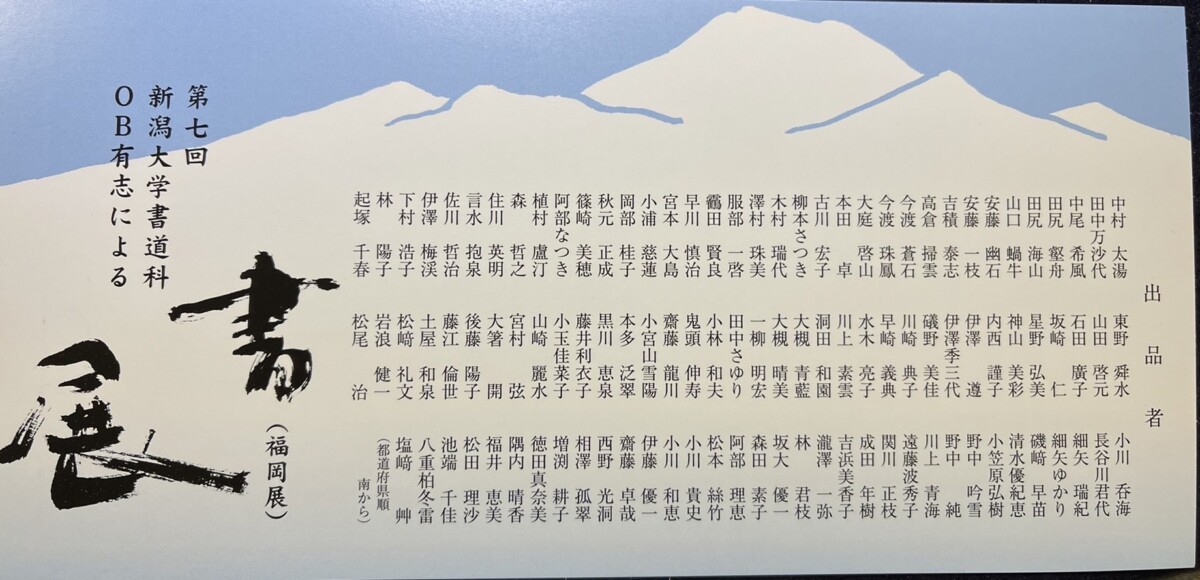 第七回
新潟大学書道科
OB有志による
書展
（福岡展）
出品者
中村 太湯
田中万沙代
中尾 希風
田尻 壑舟
田尻 海山
山口 蝸牛
安藤 幽石
安藤 一枝
吉積 泰志
高倉 掃雲
今渡 蒼石
今渡 珠鳳
大庭 啓山
本田 卓
古川 宏子
柳本さつき
木村 瑞代
澤村 珠美
服部 一啓
鶴田 賢良
早川 慎治
宮本 大島
小浦 慈蓮
岡部 桂子
秋元 正成
篠崎 美穂
阿部なつき
植村 盧汀
森 哲之
住川 英明
言水 抱泉
佐川 哲治
伊澤 梅渓
下村 浩子
林 陽子
起塚 千春
東野 舜水
山田 啓元
石田 廣子
坂崎 仁
星野 弘美
神山 美彩
内西 謹子
伊澤 遵
伊澤季三代
礒野 美佳
川崎 典子
早崎 義典
水木 亮子
川上 素雲
洞田 和園
大槻 青藍
大槻 晴美
一柳 明宏
田中さゆり
小林 和夫
鬼頭 伸寿
齋藤 龍川
小宮山雪陽
本多 泛翠
黒川 恵泉
藤井利衣子
小玉佳菜子
山崎 麗水
宮村 弦
大箸 開
後藤 陽子
藤江 倫世
土屋 和泉
松﨑 礼文
岩浪 健一
松尾 治
小川 呑海
長谷川君代
細矢 瑞紀
細矢ゆかり
磯﨑 早苗
清水優紀恵
小笠原弘樹
野中 吟雪
野中 純
川上 青海
遠藤波秀子
関川 正枝
成田 年樹
吉浜美香子
瀧澤 一弥
林 君枝
坂大 優一
森田 素子
阿部 理恵
松本 絲竹
小川 貴史
小川 和恵
伊藤 優一
齋藤 卓哉
西野 光洞
相澤 孤翠
増渕 耕子
徳田真奈美
隅内 晴香
福井 恵美
松田 理沙
池端 千佳
八重柏冬雷
塩﨑 艸
（都道府県順
南から）